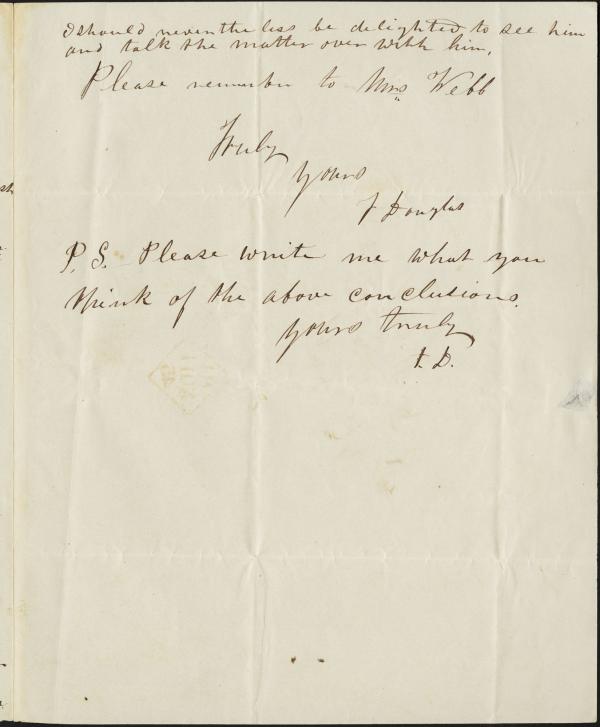 I should nevertheless be delighted to see him
and talk the matter over with him,
Please remember to Mrs Webb
Truly
yours
J Douglas
P.S. Please write me what you
think of the above conclusions.
yours truly
J. D.